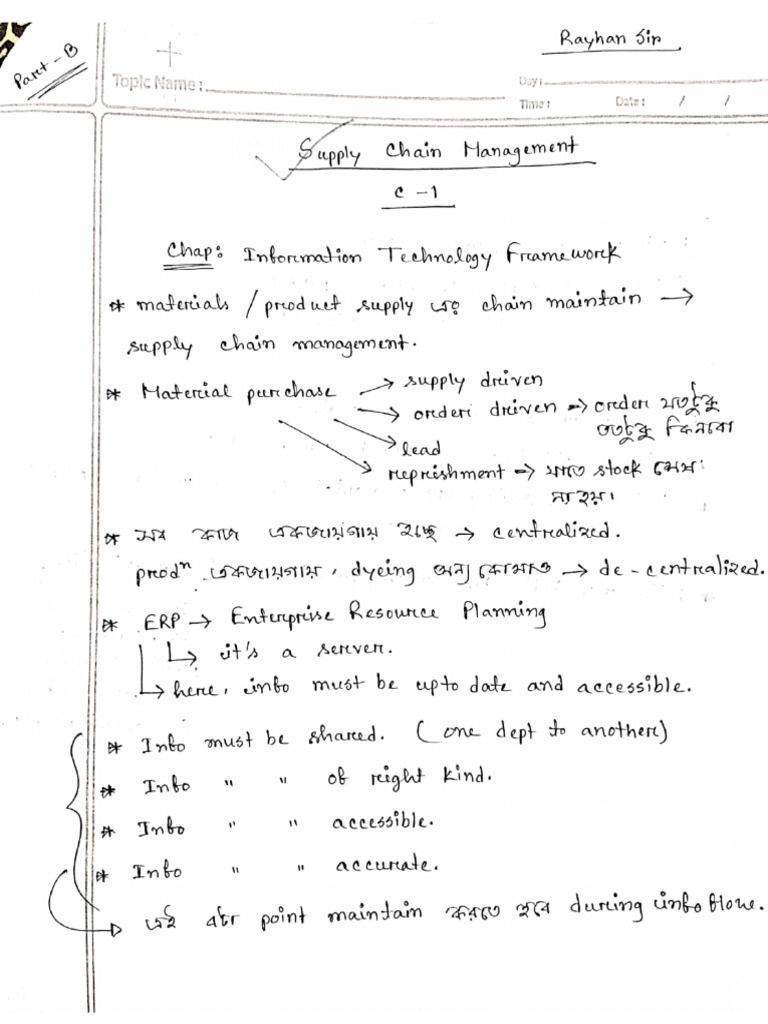 Part - B
Rayhan Sir
Topic Name :
Day :
Time : Date : / /
Supply Chain Management
C - 1
Chap: Information Technology Framework
* materials / product supply এর chain maintain →
supply chain management.
* Material purchase → supply driven
→ order driven → order যতটুকু
ততটুকু কিনবো
→ lead
→ repreishment → যাতে stock শেষ
না হয়।
* সব কাজ একজায়গায় হচ্ছে → centralized.
prodⁿ একজায়গায়, dyeing অন্য কোথাও → de-centralized.
* ERP → Enterprise Resource Planning
↳ it's a server.
↳ here, info must be upto date and accessible.
* Info must be shared. (one dept to another)
* Info " " of right kind.
* Info " " accessible.
* Info " " accurate.
এই ৪টা point maintain করতে হবে during info flow.